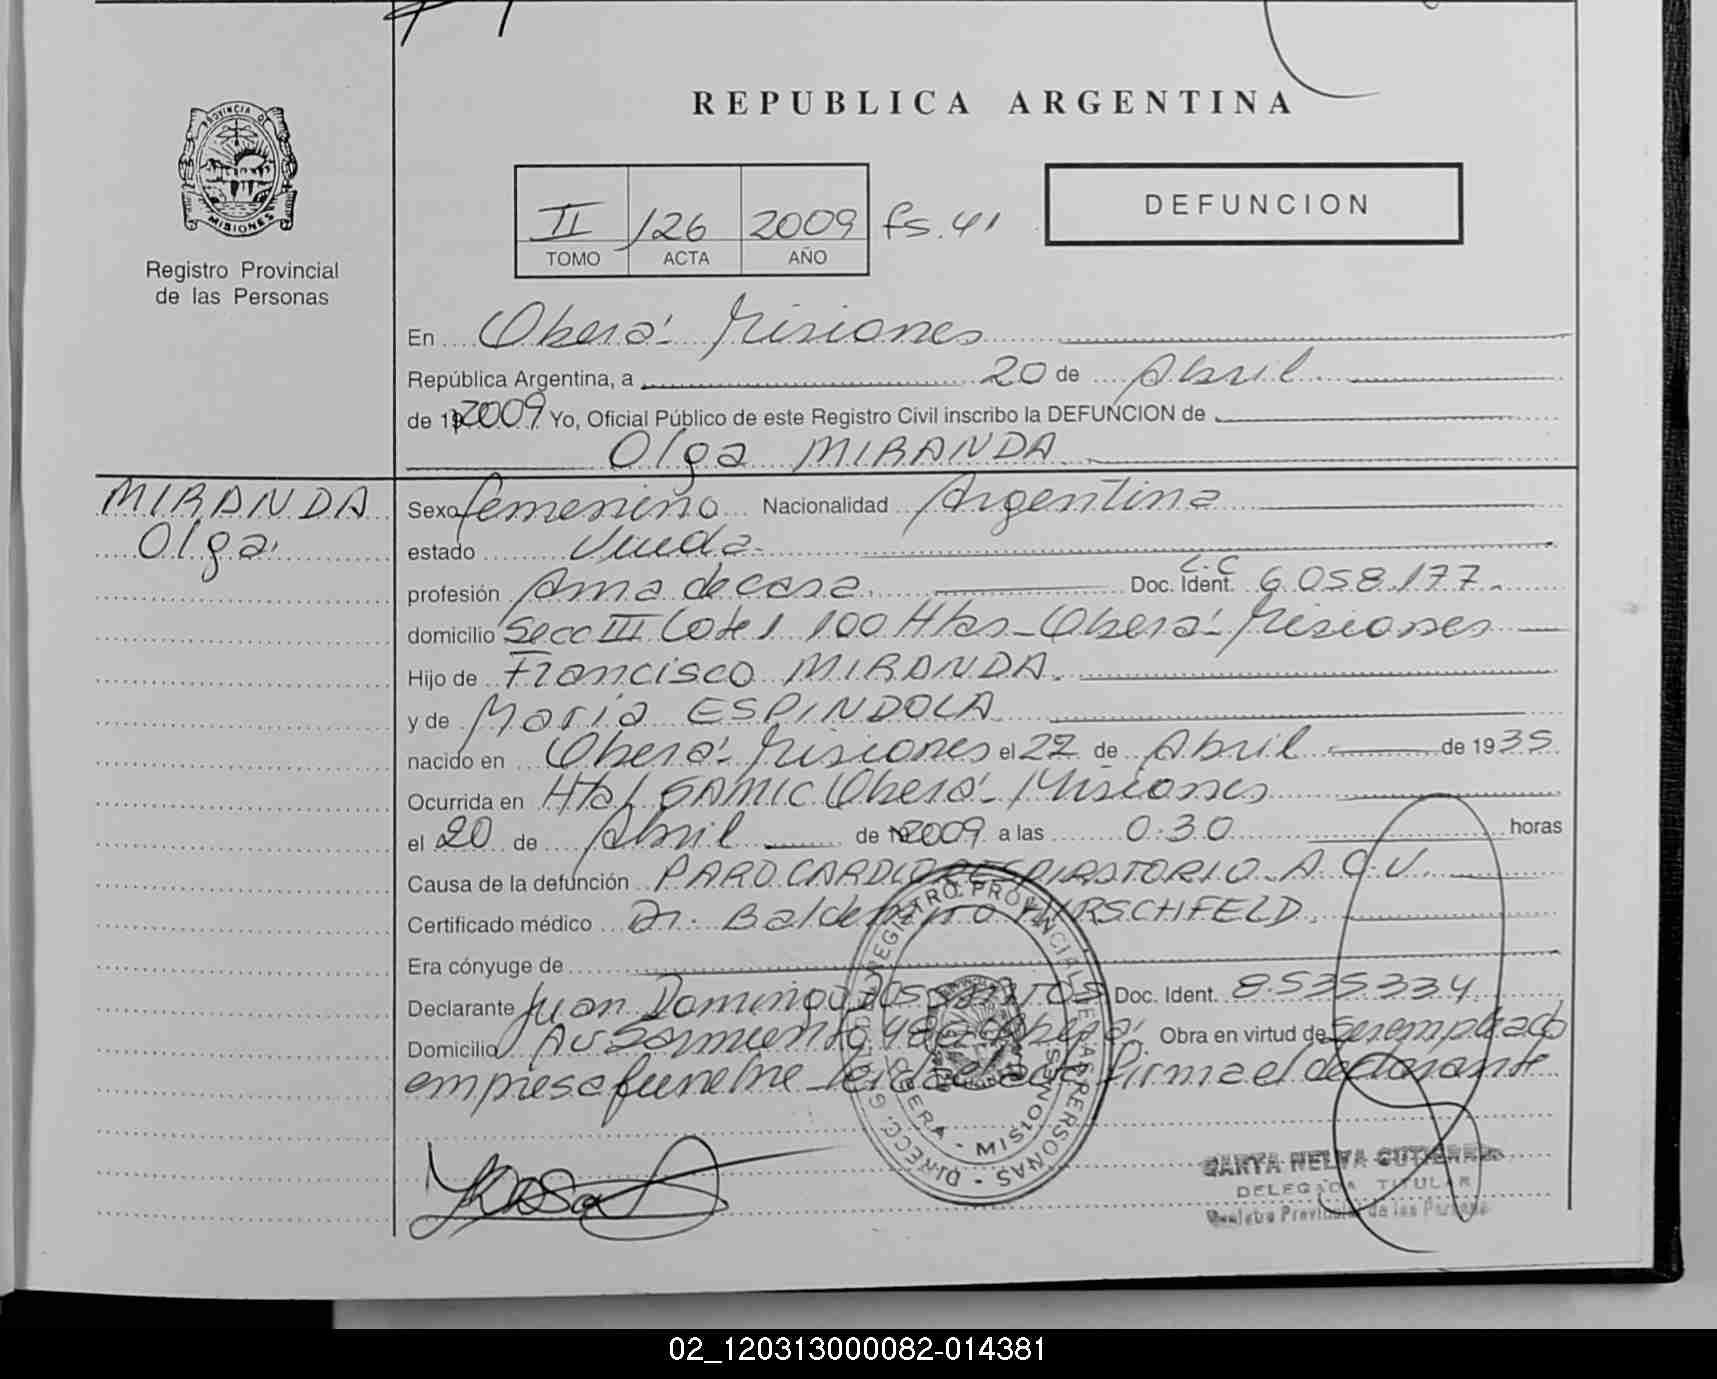 REPUBLICA ARGENTINA
PROVINCIA DE
MISIONES
Registro Provincial
de las Personas
II 126 2009 fs. 41
TOMO ACTA AÑO
DEFUNCION
En Oberá - Misiones
República Argentina, a 20 de Abril
de 19 2009 Yo, Oficial Público de este Registro Civil inscribo la DEFUNCION de
Olga MIRANDA
MIRANDA
Olga
Sexo femenino Nacionalidad Argentina
estado Viuda
profesión Ama de casa Doc. Ident. L.C 6.058.177
domicilio Secc III Lote 1 100 Htas - Oberá - Misiones
Hijo de Francisco MIRANDA
y de Maria ESPINDOLA
nacido en Oberá - Misiones el 22 de Abril de 1935
Ocurrida en Htal SAMIC Oberá - Misiones
el 20 de Abril de 2009 a las 0:30 horas
Causa de la defunción PARO CARDIO RESPIRATORIO. A.C.V.
Certificado médico Dr. Baldomero HIRSCHFELD
Era cónyuge de
Declarante Juan Domingo DOS SANTOS Doc. Ident. 8535334
Domicilio Av Sarmiento Oberá Obra en virtud de ser empleado
empresa funebre - leida el acta firma el declarante
DIRECC. GRAL. DEL REGISTRO PROVINCIAL DE LAS PERSONAS
OBERA - MISIONES
DELEGADA TITULAR
Registro Provincial de las Personas
02_120313000082-014381